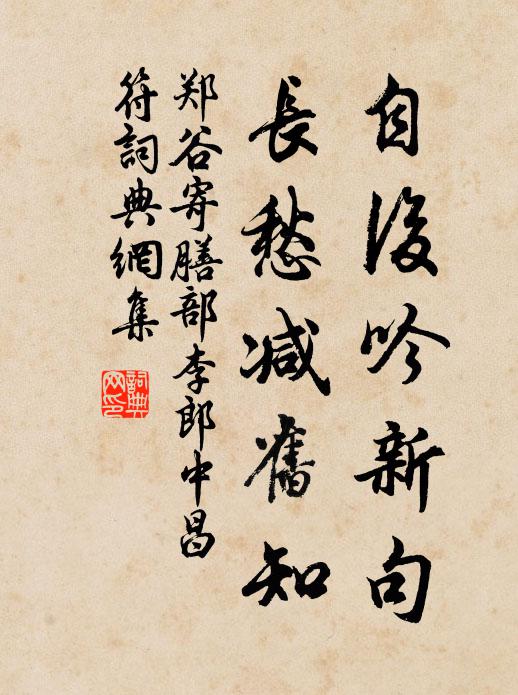 自後吟新句
長愁减舊知
郑谷寄膳部李郎中昌
符詞典網集
詞典
网印